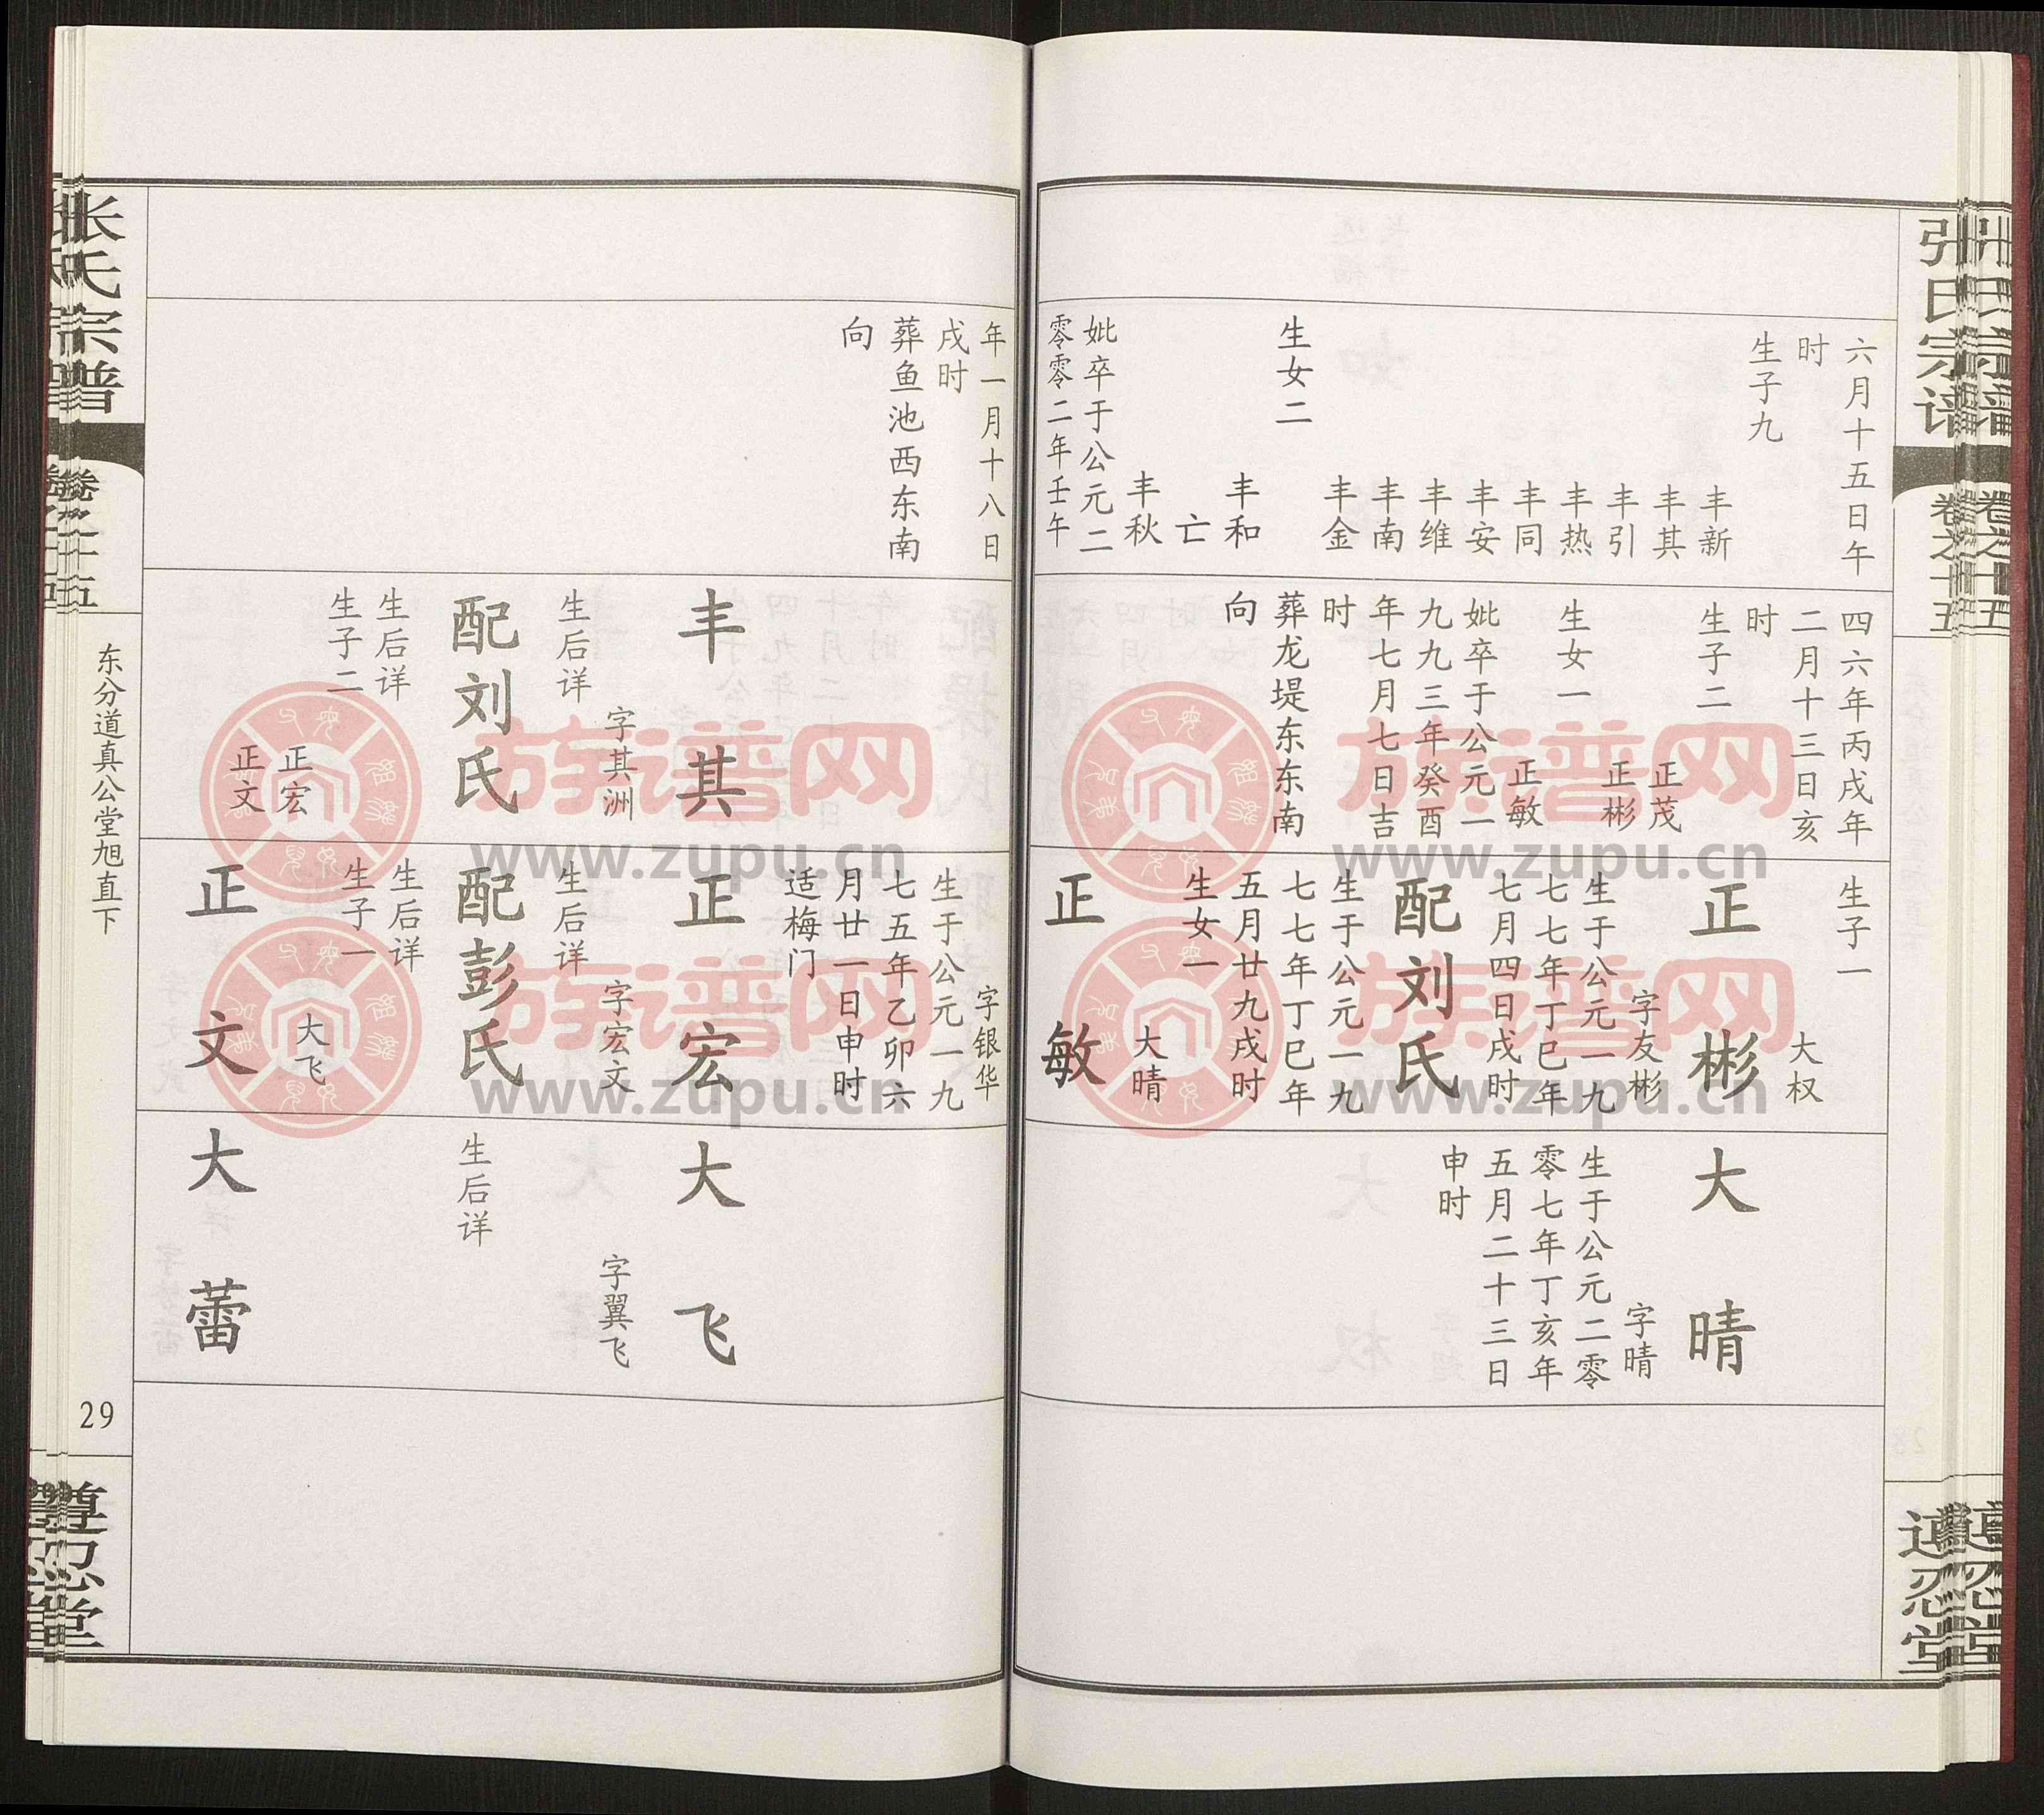 张氏宗谱
卷之十五
遵忍堂
六月十五日午
时
生子九
丰新
丰其
丰引
丰热
丰同
丰安
丰维
丰南
丰金
生女二
丰和
亡
丰秋
妣卒于公元二
零零二年壬午
四六年丙戌年
二月十三日亥
时
生子二
正茂
正彬
生女一
正敏
妣卒于公元一
九九三年癸酉
年七月七日吉
时
葬龙堤东东南
向
生子一
大权
正彬
字友彬
生于公元一九
七七年丁巳年
七月四日戌时
配刘氏
生于公元一九
七七年丁巳年
五月廿九戌时
生女一
大晴
正敏
大晴
字晴
生于公元二零
零七年丁亥年
五月二十三日
申时
年一月十八日
戌时
葬鱼池西东南
向
丰其
字其洲
生后详
配刘氏
生后详
生子二
正宏
正文
字银华
生于公元一九
七五年乙卯六
月廿一日申时
适梅门
正宏
字宏文
生后详
配彭氏
生后详
生子一
大飞
正文
大飞
字翼飞
生后详
大蕾
张氏宗谱
卷之十五
东分道真公堂旭直下
29
遵忍堂
族谱网
www.zupu.cn
族谱网
www.zupu.cn
族谱网
www.zupu.cn
族谱网
www.zupu.cn